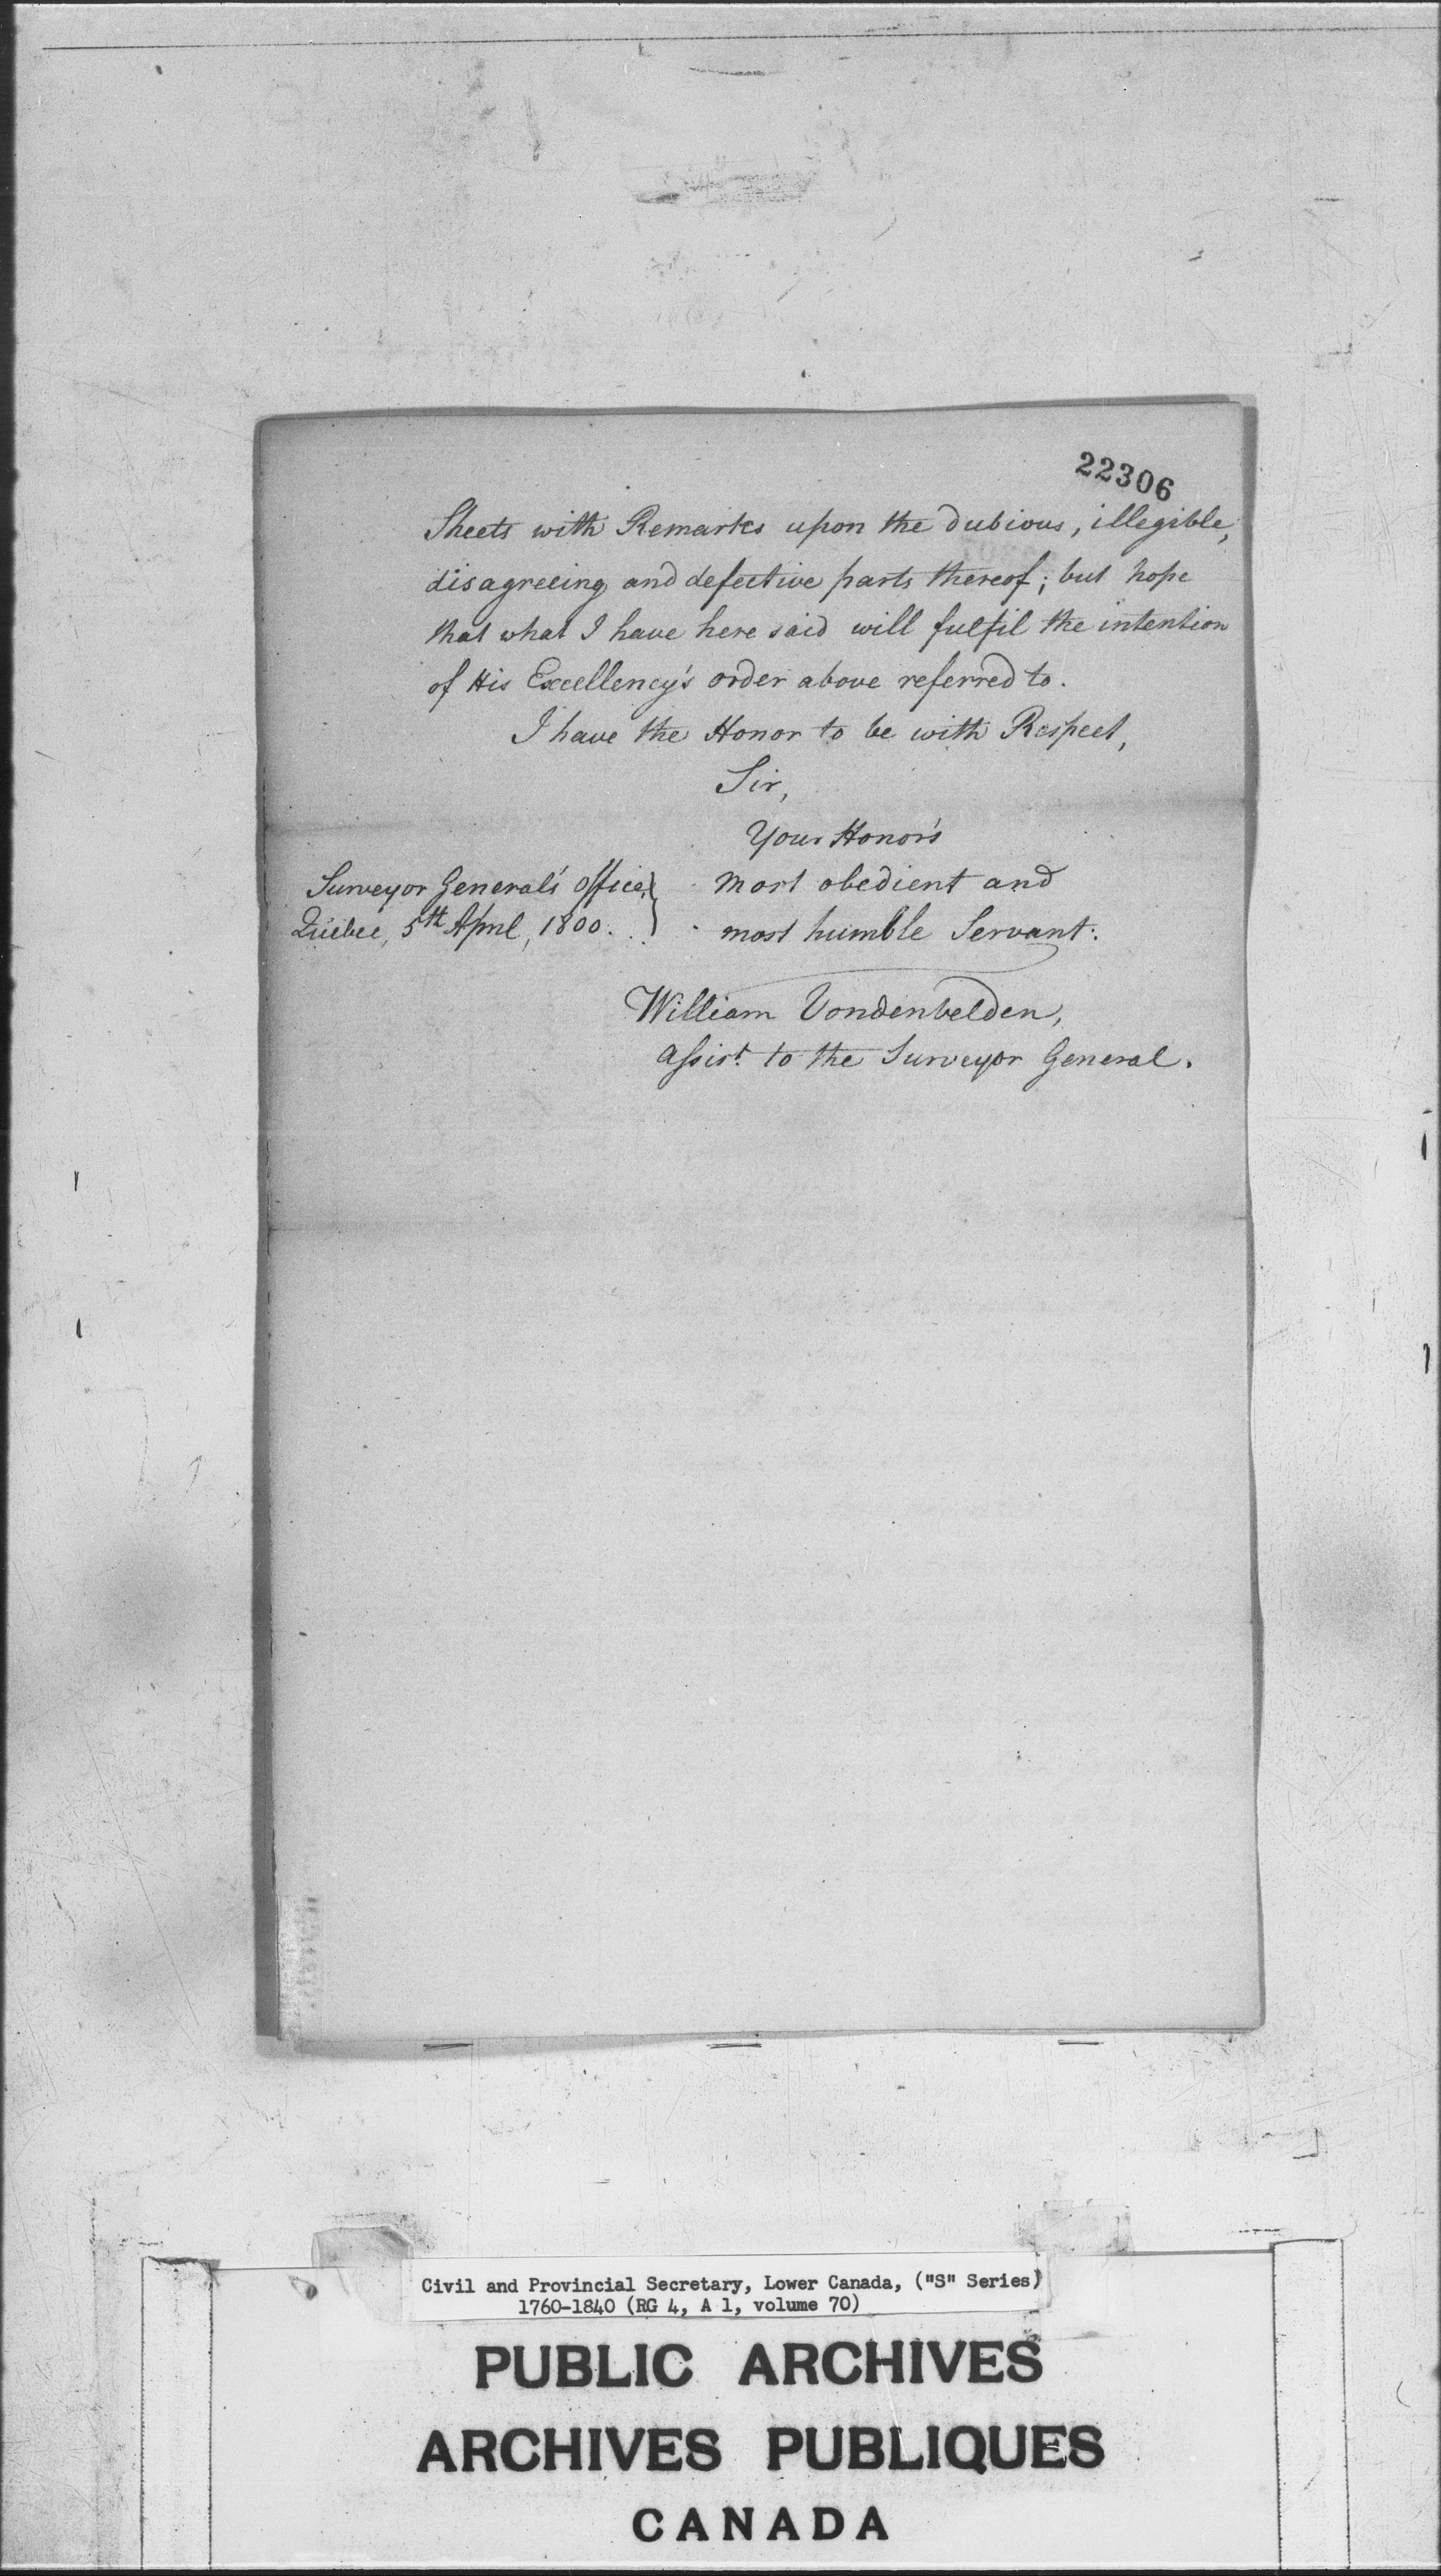 22306
Sheets with Remarks upon the dubious, illegible,
disagreeing and defective parts thereof; but hope
that what I have here said will fulfil the intention
of His Excellency's order above referred to.
I have the Honor to be with Respect,
Sir,
Your Honor's
Surveyor General's Office, } most obedient and
Quebec, 5th April, 1800. } most humble Servant.
William Vondenvelden,
Assist. to the Surveyor General.
Civil and Provincial Secretary, Lower Canada, ("S" Series)
1760-1840 (RG 4, A 1, volume 70)
PUBLIC ARCHIVES
ARCHIVES PUBLIQUES
CANADA